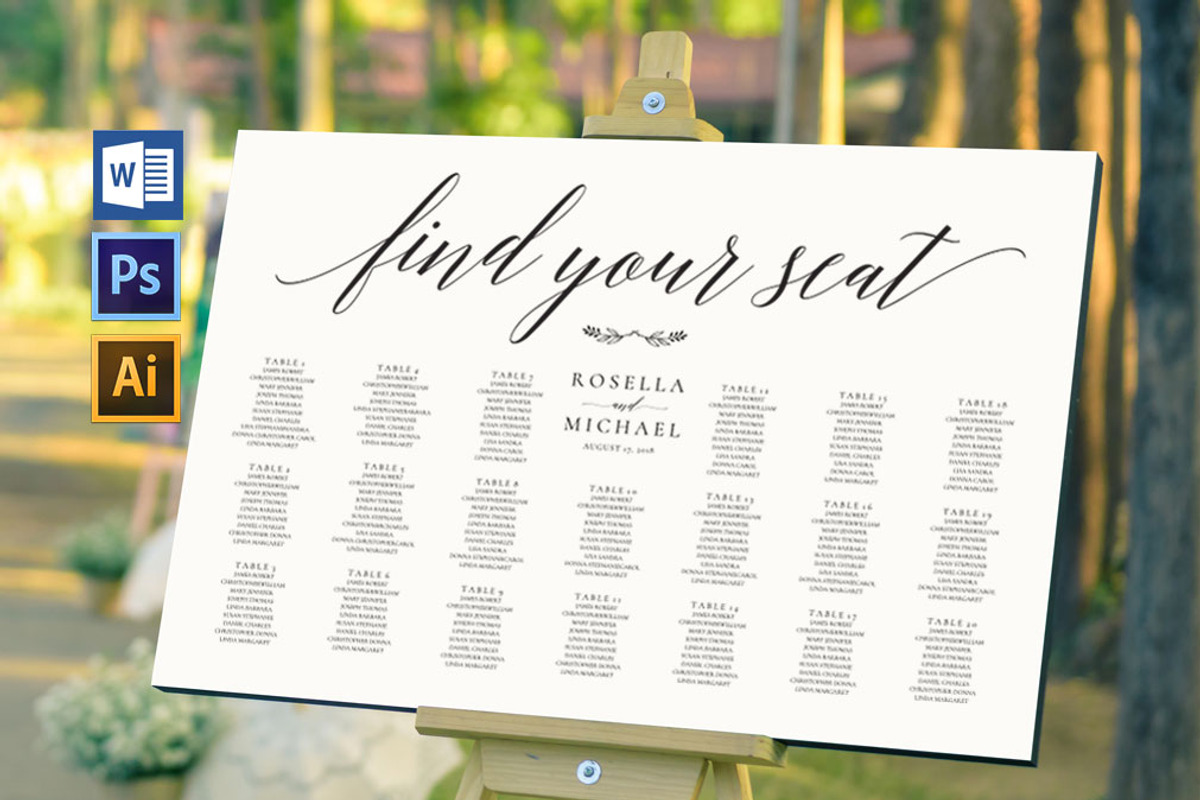 W
Ps
Ai
find your seat
ROSELLA
and
MICHAEL
AUGUST 17, 2018
TABLE 1
JAMES ROBERT
CHRISTOPHERWILLIAM
MARY JENNIFER
JOSEPH THOMAS
LINDA BARBARA
SUSAN STEPHANIE
DANIEL CHARLES
DONNA CHRISTOPHER CAROL
LINDA MARGARET
TABLE 2
JAMES ROBERT
CHRISTOPHERWILLIAM
MARY JENNIFER
JOSEPH THOMAS
LINDA BARBARA
SUSAN STEPHANIE
DANIEL CHARLES
CHRISTOPHER DONNA
LINDA MARGARET
TABLE 3
JAMES ROBERT
CHRISTOPHERWILLIAM
MARY JENNIFER
JOSEPH THOMAS
LINDA BARBARA
SUSAN STEPHANIE
DANIEL CHARLES
CHRISTOPHER DONNA
LINDA MARGARET
TABLE 4
JAMES ROBERT
CHRISTOPHERWILLIAM
MARY JENNIFER
JOSEPH THOMAS
LINDA STEPHANIEBARBARA
SUSAN STEPHANIE
DANIEL CHARLES
CHRISTOPHER DONNA
LINDA MARGARET
TABLE 5
JAMES ROBERT
CHRISTOPHERWILLIAM
MARY JENNIFER
JOSEPH THOMAS
LINDA BARBARA
SUSAN STEPHANIE
CHRISTOPHERCHARLES
LISA SANDRA
DONNA CHRISTOPHERCAROL
LINDA MARGARET
TABLE 6
JAMES ROBERT
CHRISTOPHERWILLIAM
MARY JENNIFER
JOSEPH THOMAS
LINDA BARBARA
SUSAN STEPHANIE
DANIEL CHARLES
CHRISTOPHER DONNA
LINDA MARGARET
TABLE 7
JAMES ROBERT
CHRISTOPHERWILLIAM
MARY JENNIFER
JOSEPH THOMAS
LINDA BARBARA
SUSAN STEPHANIE
DANIEL CHARLES
LISA SANDRA
DONNA CAROL
LINDA MARGARET
TABLE 8
JAMES ROBERT
CHRISTOPHERWILLIAM
MARY JENNIFER
JOSEPH THOMAS
LINDA BARBARA
SUSAN STEPHANIE
DANIEL CHARLES
LISA SANDRA
DONNA STEPHANIECAROL
LINDA MARGARET
TABLE 9
JAMES ROBERT
CHRISTOPHERWILLIAM
MARY JENNIFER
JOSEPH THOMAS
LINDA BARBARA
SUSAN STEPHANIE
DANIEL CHARLES
CHRISTOPHER DONNA
LINDA MARGARET
TABLE 10
JAMES ROBERT
CHRISTOPHERWILLIAM
MARY JENNIFER
JOSEPH THOMAS
LINDA BARBARA
SUSAN STEPHANIE
DANIEL CHARLES
LISA SANDRA
DONNA STEPHANIECAROL
LINDA MARGARET
TABLE 11
JAMES ROBERT
CHRISTOPHERWILLIAM
MARY JENNIFER
JOSEPH THOMAS
LINDA BARBARA
SUSAN STEPHANIE
DANIEL CHARLES
CHRISTOPHER DONNA
LINDA MARGARET
JAMES ROBERT
CHRISTOPHERWILLIAM
MARY JENNIFER
JOSEPH THOMAS
LINDA BARBARA
SUSAN STEPHANIE
DANIEL CHARLES
LISA SANDRA
DONNA CAROL
LINDA MARGARET
TABLE 13
JAMES ROBERT
CHRISTOPHERWILLIAM
MARY JENNIFER
JOSEPH THOMAS
LINDA BARBARA
SUSAN STEPHANIE
DANIEL CHARLES
LISA SANDRA
DONNA STEPHANIECAROL
LINDA MARGARET
TABLE 14
JAMES ROBERT
CHRISTOPHERWILLIAM
MARY JENNIFER
JOSEPH THOMAS
LINDA BARBARA
SUSAN STEPHANIE
DANIEL CHARLES
CHRISTOPHER DONNA
LINDA MARGARET
TABLE 15
JAMES ROBERT
CHRISTOPHERWILLIAM
MARY JENNIFER
JOSEPH THOMAS
LINDA BARBARA
SUSAN STEPHANIE
DANIEL CHARLES
LISA SANDRA
DONNA CAROL
LINDA MARGARET
TABLE 16
JAMES ROBERT
CHRISTOPHERWILLIAM
MARY JENNIFER
JOSEPH THOMAS
LINDA BARBARA
SUSAN STEPHANIE
DANIEL CHARLES
LISA SANDRA
DONNA STEPHANIECAROL
LINDA MARGARET
TABLE 17
JAMES ROBERT
CHRISTOPHERWILLIAM
MARY JENNIFER
JOSEPH THOMAS
LINDA BARBARA
SUSAN STEPHANIE
DANIEL CHARLES
CHRISTOPHER DONNA
LINDA MARGARET
TABLE 18
JAMES ROBERT
CHRISTOPHERWILLIAM
MARY JENNIFER
JOSEPH THOMAS
LINDA BARBARA
SUSAN STEPHANIE
DANIEL CHARLES
LISA SANDRA
DONNA CAROL
LINDA MARGARET
TABLE 19
JAMES ROBERT
CHRISTOPHERWILLIAM
MARY JENNIFER
JOSEPH THOMAS
LINDA BARBARA
SUSAN STEPHANIE
DANIEL CHARLES
LISA SANDRA
DONNA CHRISTOPHERCAROL
LINDA MARGARET
TABLE 20
JAMES ROBERT
CHRISTOPHERWILLIAM
MARY JENNIFER
JOSEPH THOMAS
LINDA BARBARA
SUSAN STEPHANIE
DANIEL CHARLES
CHRISTOPHER DONNA
LINDA MARGARET